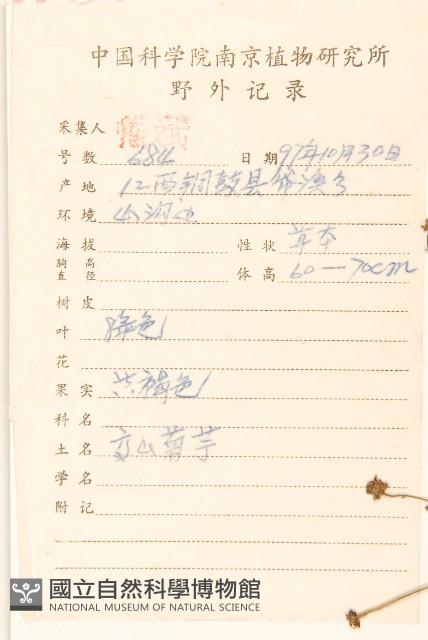 中国科学院南京植物研究所
野外记录
采集人 熊
号数 684 日期 97年10月30日
产地 江西铜鼓县
环境 山沟边
海拔 性状 草本
胸高直径 体高 60—70cm
树皮
叶 绿色
花
果实 黄褐色
科名
土名 高山蓟芋
学名
附记
國立自然科學博物館
NATIONAL MUSEUM OF NATURAL SCIENCE